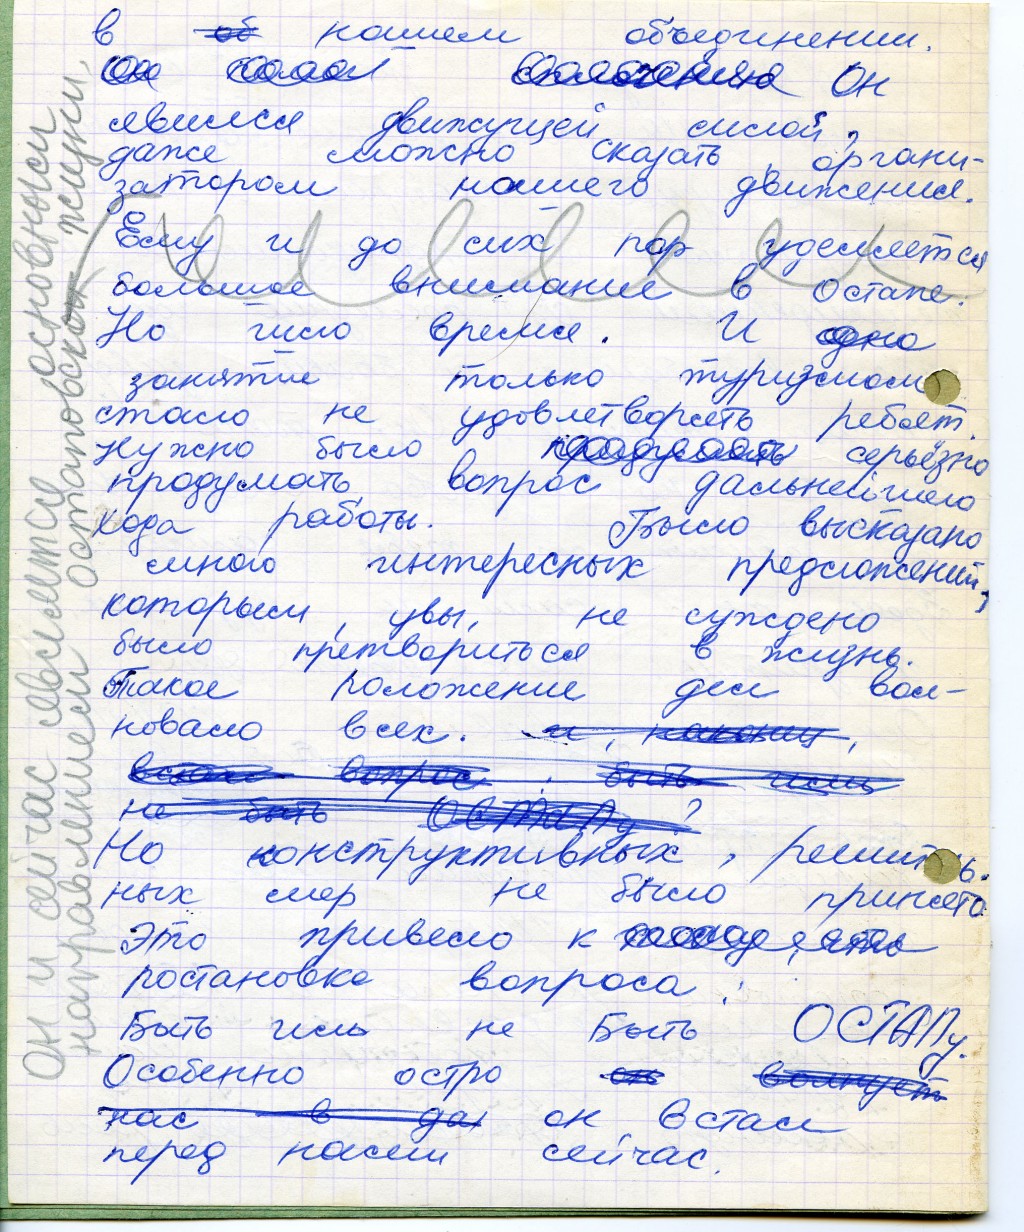 в об нашем объединении.
Он самой Он
явился движущей силой,
даже можно сказать, органи-
затором нашего движения.
Ему и до сих пор уделяется
большое внимание в Остапе.
Но шло время. И одно
занятие только туризмом
стало не удовлетворять ребят.
Нужно было продумать серьёзно
продумать вопрос дальнейшего
хода работы. Было высказано
много интересных предложений,
которым, увы, не суждено
было претвориться в жизнь.
Такое положение дел вол-
новало всех. и, наконец,
встал вопрос: быть или
не быть ОСТАПу?
Но конструктивных, решитель-
ных мер не было принято
Это привело к
постановке вопроса:
Быть или не Быть ОСТАПу.
Особенно остро он волнует
нас в да он встал
перед нами сейчас.
Он и сейчас является основным
направлением остаповской жизни.